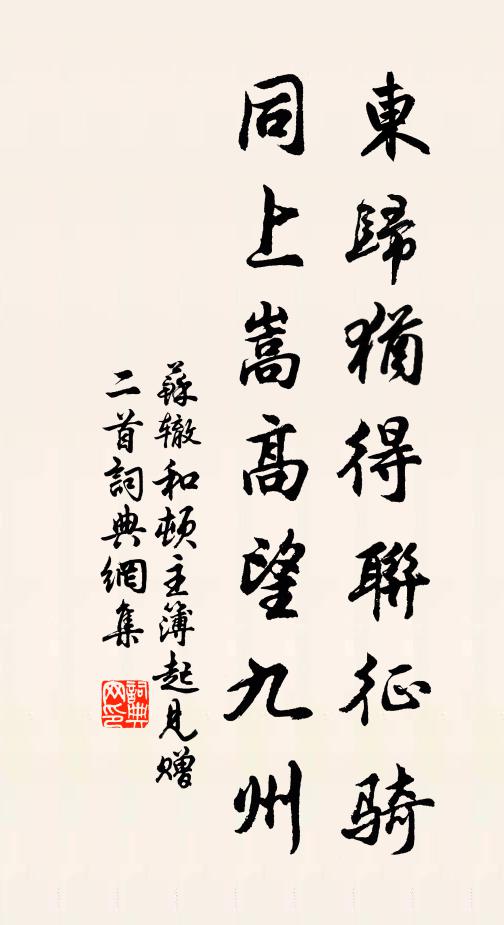 東歸猶得聯征騎
同上嵩高望九州
蘇辙和頓主簿起見贈
二首詞典網集
詞典
网印